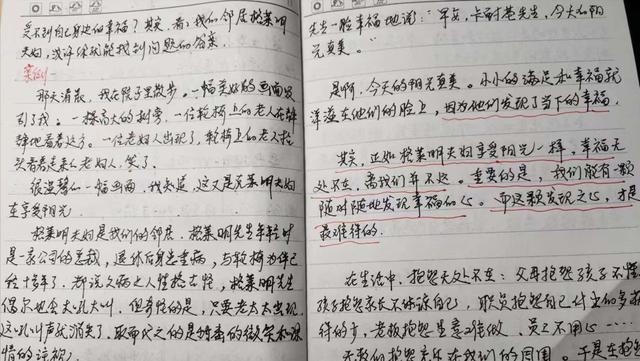 受不到自己身边的幸福？其实，看看我们邻居格莱明
夫妇，或许你就能找到问题的答案。
案例一
那天清晨，我在院子里散步，一幅美好的画面吸
引了我。一棵高大的树旁，一位轮椅上的老人在静
静地看着远方。一位老妇人出现了，轮椅上的老人抬
头看着走来的老妇人，笑了。
很温馨的一幅画面，我知道，这又是格莱明夫妇
在享受阳光。
格莱明夫妇是我们的邻居。格莱明先生年轻时
是一家公司的总裁，退休后身患重病，与轮椅为伴已
经十多年了。都说久病之人性格古怪，格莱明先生
偶尔也会大吼大叫。但奇怪的是，只要老太太出现，
这吼叫声就消失了。取而代之的是的微笑和深
情的注视。
先生一脸幸福地说："早安，卡耐基先生，今天的阳
光真美。"
是啊，今天的阳光真美。小小的满足和幸福就
洋溢在他们的脸上，因为他们发现了当下的幸福。
其实，正如格莱明夫妇享受阳光一样，幸福无
处不在，离我们并不远。重要的是，我们能有一颗
随时随地发现幸福的心。而这颗发现之心，才是
最难得的。
在生活中，抱怨无处不在：父母抱怨孩子不懂
孩子抱怨家长不体谅自己，职员抱怨自己付出的多
得的少，老板抱怨生意难做，员工不用心……